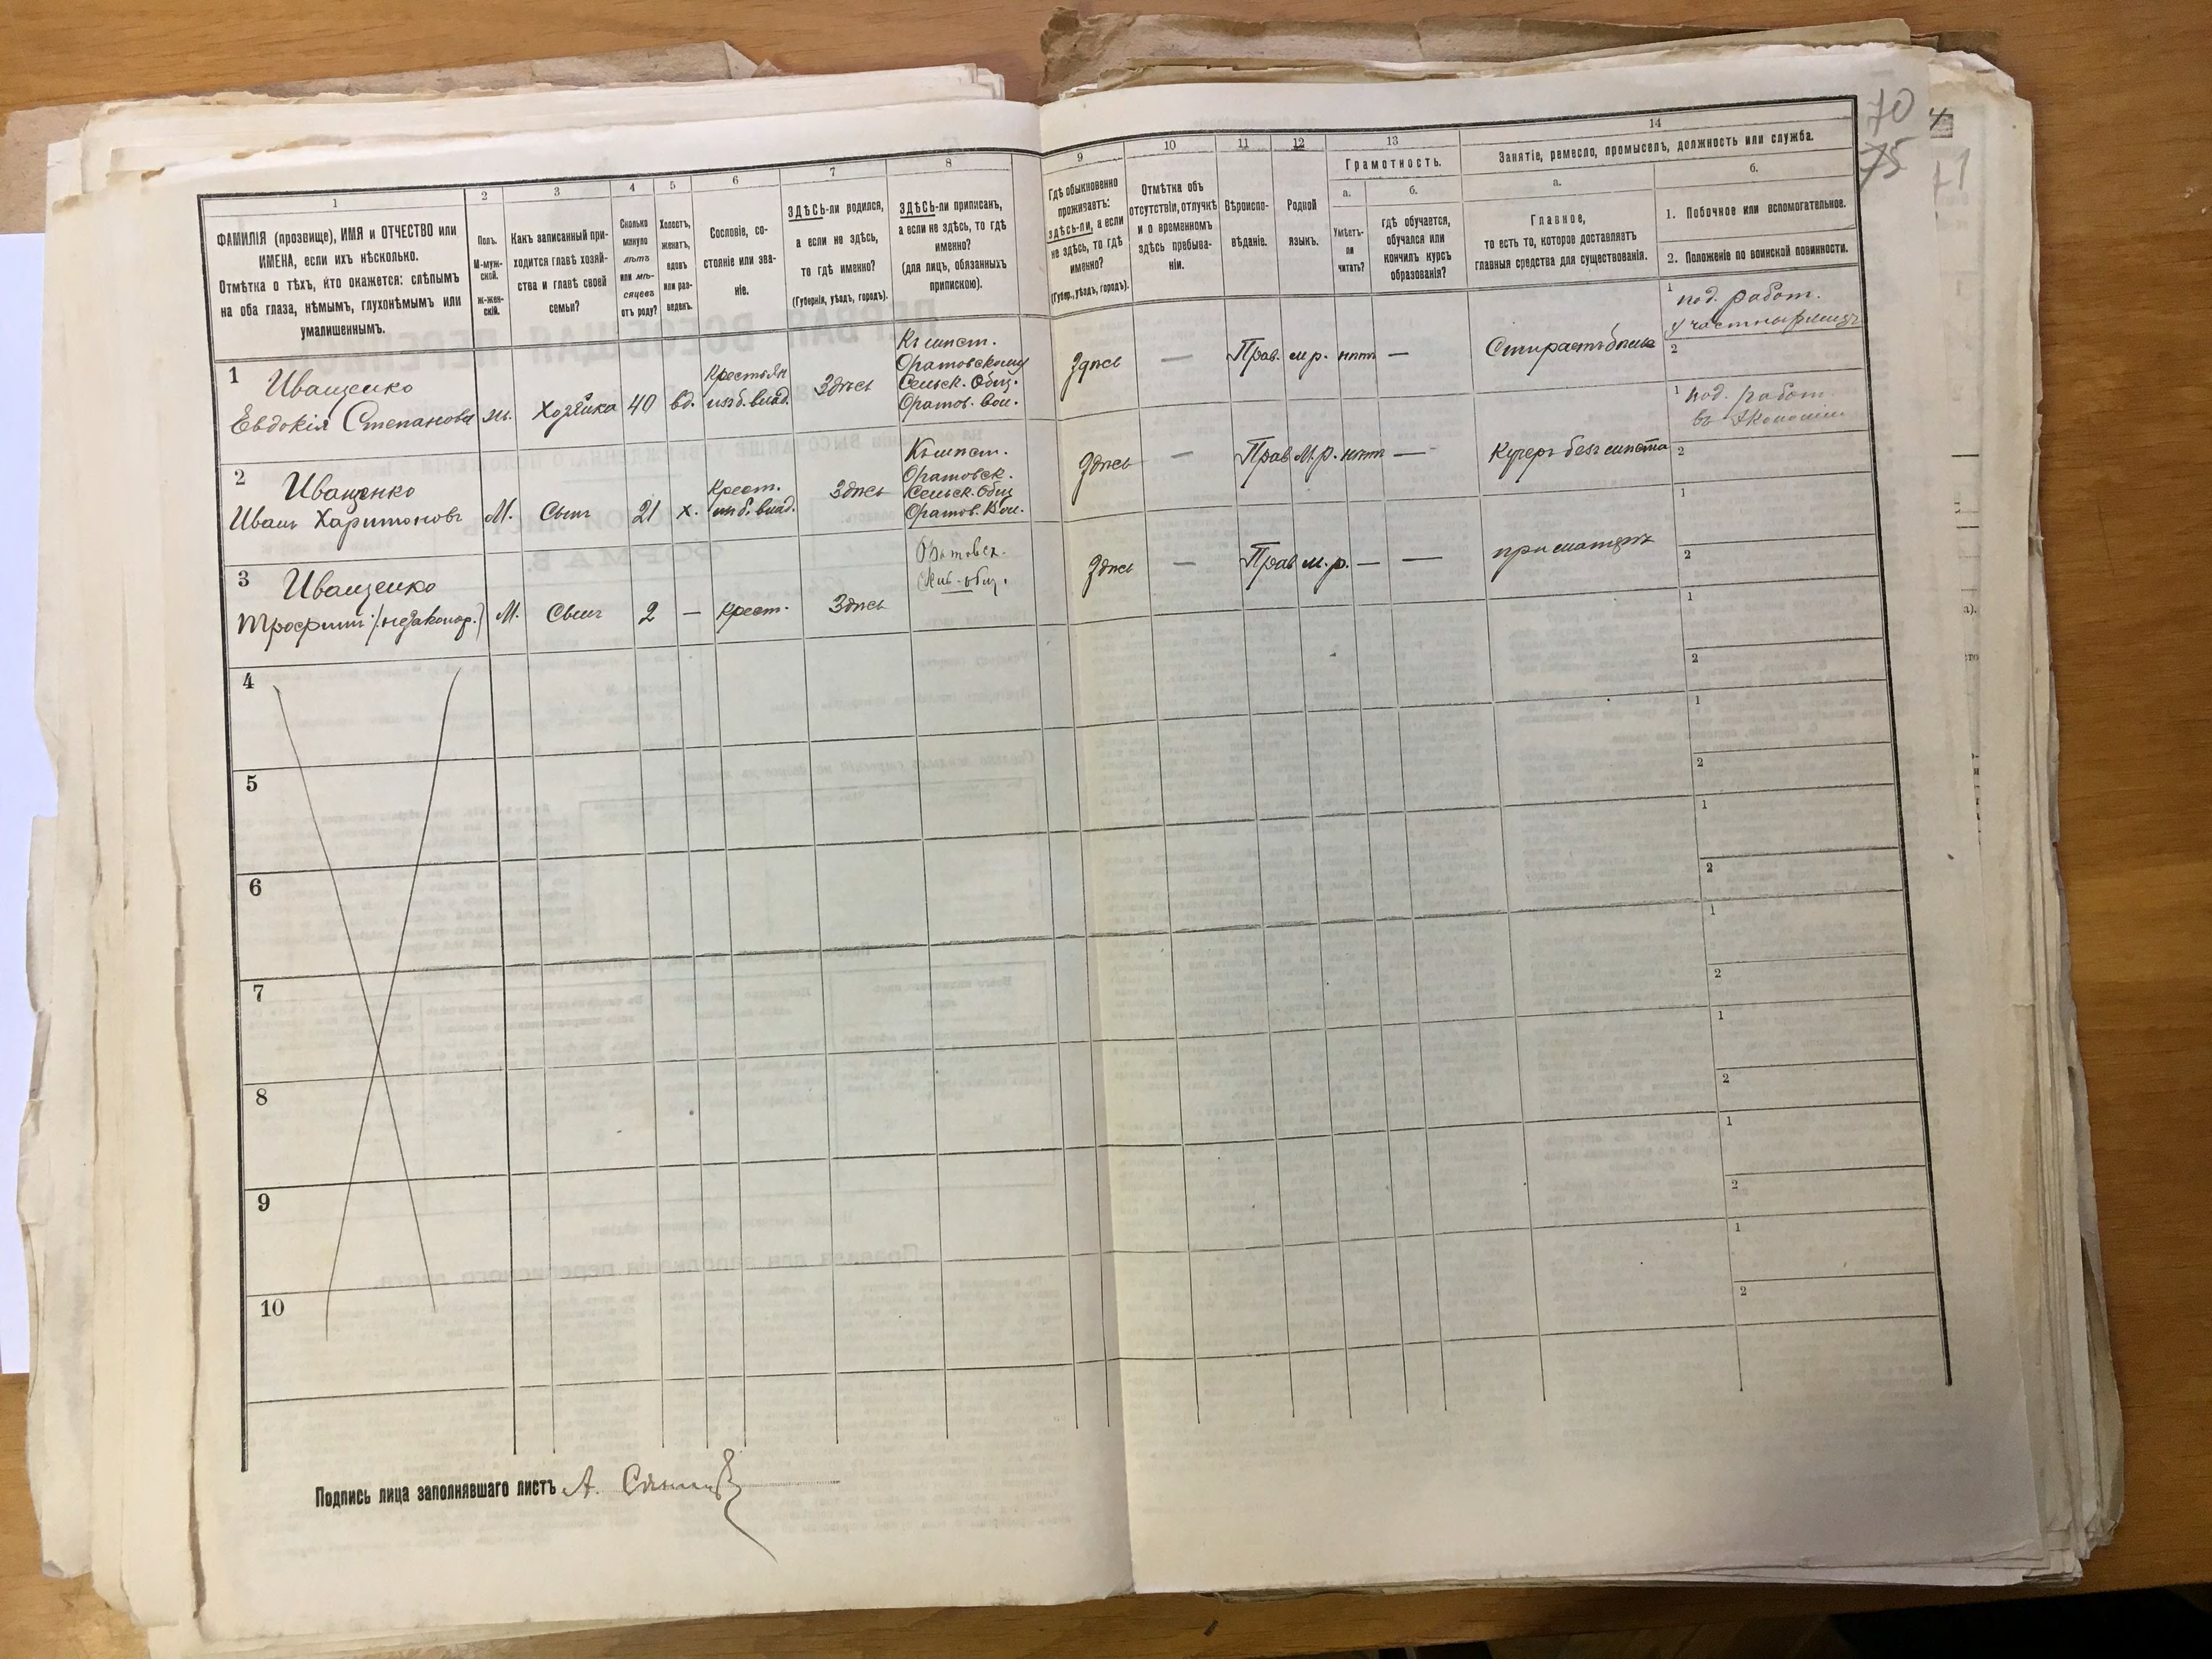 70
75
71
1
2
3
4
5
6
7
8
9
10
11
12
13
14
ФАМИЛІЯ (прозвище), ИМЯ и ОТЧЕСТВО или
ИМЕНА, если ихъ нѣсколько.
Отмѣтка о тѣхъ, кто окажется: слѣпымъ
на оба глаза, нѣмымъ, глухонѣмымъ или
умалишеннымъ.
Полъ.
М-муж-
ской.
Ж-жен-
скій.
Какъ записанный при-
ходится главѣ хозяй-
ства и главѣ своей
семьи?
Сколько
минуло
лѣтъ
или мѣ-
сяцевъ
отъ роду?
Холостъ,
женатъ,
вдовъ
или раз-
веденъ.
Сословіе, со-
стояніе или зва-
ніе.
ЗДѢСЬ-ли родился,
а если не здѣсь,
то гдѣ именно?
(Губернія, уѣздъ, городъ).
ЗДѢСЬ-ли приписанъ,
а если не здѣсь, то гдѣ
именно?
(для лицъ, обязанныхъ
припискою).
Гдѣ обыкновенно
проживаетъ:
здѣсь-ли, а если
не здѣсь, то гдѣ
именно?
(Губер., уѣздъ, городъ).
Отмѣтка объ
отсутствіи, отлучкѣ
и о временномъ
здѣсь пребыва-
ніи.
Вѣроиспо-
вѣданіе.
Родной
языкъ.
Грамотность.
а.
Умѣетъ-
ли
читать?
б.
гдѣ обучается,
обучался или
кончилъ курсъ
образованія?
Занятіе, ремесло, промыселъ, должность или служба.
а.
Главное,
то есть то, которое доставляетъ
главныя средства для существованія.
б.
1. Побочное или вспомогательное.
2. Положеніе по воинской повинности.
1
Иващенко
Евдокія Степанова
ж.
Хозяйка
40
вд.
Крестьян
изъ б. влад.
Здѣсь
Къ мѣст.
Оратовскому
Сельск. Общ.
Оратов. Вол.
Здѣсь
—
Прав.
м р.
нѣтъ
—
1 под. работ.
2
2
Иващенко
Иванъ Харитоновъ
М.
Сынъ
21
х.
Крест.
изъ б. влад.
Здѣсь
Къ мѣст.
Оратовск.
Сельск. Общ
Оратов. Вол.
Здѣсь
—
Прав
м. р.
нѣтъ
—
Кучеръ безъ мѣста
1 под. работ.
въ Экономіи
2
3
Иващенко
Трофимъ (незаконор.)
М.
Сынъ
2
—
Крест.
Здѣсь
Здѣсь
—
Прав
м. р.
—
—
при матери
1
2
4
1
2
5
1
2
6
1
2
7
1
2
8
1
2
9
1
2
10
1
2
Подпись лица заполнявшаго листъ А.